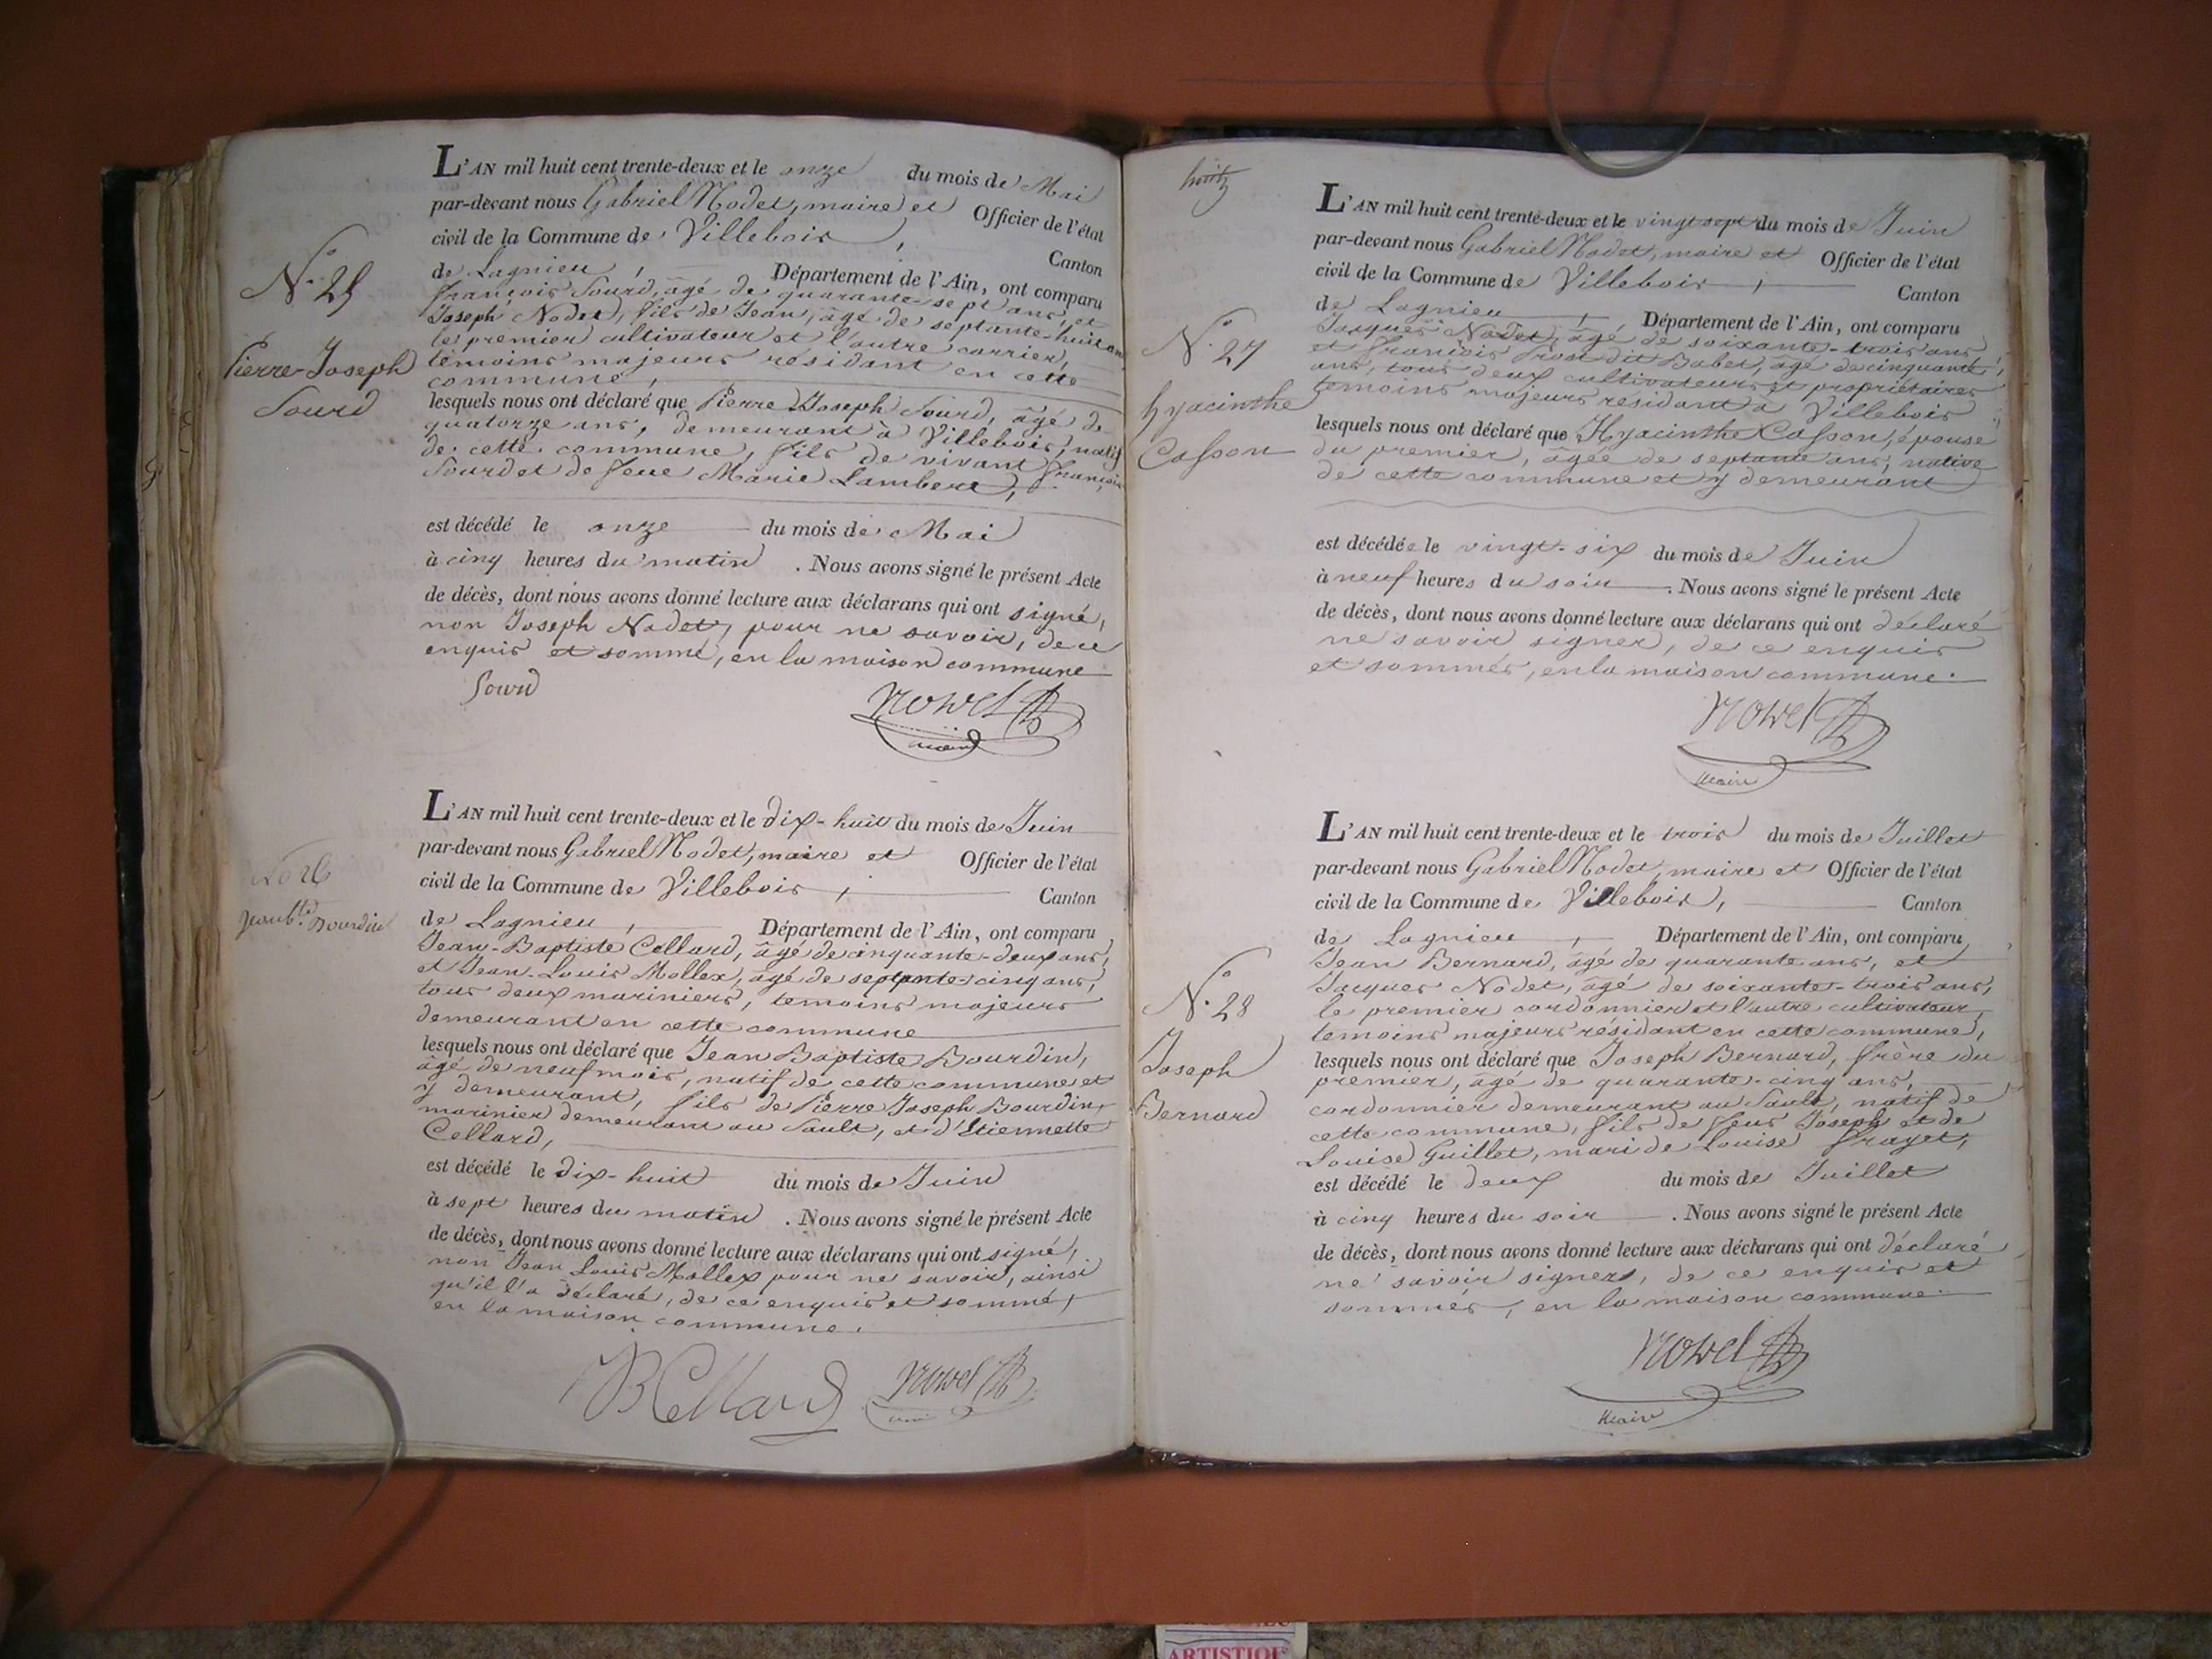 L'AN mil huit cent trente-deux et le onze du mois de Mai
par-devant nous Gabriel Nodet, maire et Officier de l'état
civil de la Commune de Villebois, Canton
de Lagnieu, Département de l'Ain, ont comparu
françois Sourd, âgé de quarante-sept ans, et
Joseph Nodet, fils de Jean, âgé de septante-huit ans
le premier cultivateur et l'autre carrier,
témoins majeurs résidant en cette
commune,
lesquels nous ont déclaré que Pierre Joseph Sourd, âgé de
quatorze ans, demeurant à Villebois, natif
de cette commune, fils de vivant françois
Sourd et de feue Marie Lambert,
est décédé le onze du mois de Mai
à cinq heures du matin. Nous avons signé le présent Acte
de décès, dont nous avons donné lecture aux déclarans qui ont signé,
non Joseph Nodet, pour ne savoir, de ce
enquis et sommé, en la maison commune
Sourd
Nodet
maire
N.° 25
Pierre-Joseph
Sourd
L'AN mil huit cent trente-deux et le dix-huit du mois de Juin
par-devant nous Gabriel Nodet, maire et Officier de l'état
civil de la Commune de Villebois, Canton
de Lagnieu, Département de l'Ain, ont comparu
Jean-Baptiste Cellard, âgé de cinquante-deux ans,
et Jean-Louis Mollex, âgé de septante-cinq ans,
tous deux mariniers, témoins majeurs
demeurant en cette commune
lesquels nous ont déclaré que Jean Baptiste Bourdin,
âgé de neuf mois, natif de cette commune et
y demeurant, fils de Pierre Joseph Bourdin,
marinier demeurant au Sault, et d'Etiennette
Cellard,
est décédé le dix-huit du mois de Juin
à sept heures du matin. Nous avons signé le présent Acte
de décès, dont nous avons donné lecture aux déclarans qui ont signé,
non Jean Louis Mollex pour ne savoir, ainsi
qu'il l'a déclaré, de ce enquis et sommé,
en la maison commune.
JB Cellard Nodet
N° 26
Jean Bte Bourdin
L'AN mil huit cent trente-deux et le vingt sept du mois de Juin
par-devant nous Gabriel Nodet, maire et Officier de l'état
civil de la Commune de Villebois, Canton
de Lagnieu, Département de l'Ain, ont comparu
Jacques Nodet, âgé de soixante-trois ans
et françois frost dit Babet, âgé de cinquante
ans, tous deux cultivateurs et propriétaires
témoins majeurs résidant à Villebois
lesquels nous ont déclaré que Hyacinthe Casson, épouse
du premier, âgée de septante ans, native
de cette commune et y demeurant
est décédée le vingt-six du mois de Juin
à neuf heures du soir. Nous avons signé le présent Acte
de décès, dont nous avons donné lecture aux déclarans qui ont déclaré
ne savoir signer, de ce enquis
et sommés, en la maison commune.
Nodet
Maire
N.° 27
hyacinthe
Casson
L'AN mil huit cent trente-deux et le trois du mois de Juillet
par-devant nous Gabriel Nodet, maire et Officier de l'état
civil de la Commune de Villebois, Canton
de Lagnieu, Département de l'Ain, ont comparu
Jean Bernard, âgé de quarante ans, et
Jacques Nodet, âgé de soixante-trois ans,
le premier cordonnier et l'autre cultivateur,
témoins majeurs résidant en cette commune,
lesquels nous ont déclaré que Joseph Bernard, frère du
premier, âgé de quarante-cinq ans,
cordonnier demeurant au Sault, natif de
cette commune, fils de feus Joseph et de
Louise Guillet, mari de Louise frayet,
est décédé le deux du mois de Juillet
à cinq heures du soir. Nous avons signé le présent Acte
de décès, dont nous avons donné lecture aux déclarans qui ont déclaré
ne savoir signer, de ce enquis et
sommés, en la maison commune.
Nodet
Maire
N.° 28
Joseph
Bernard
ARTISTIQU